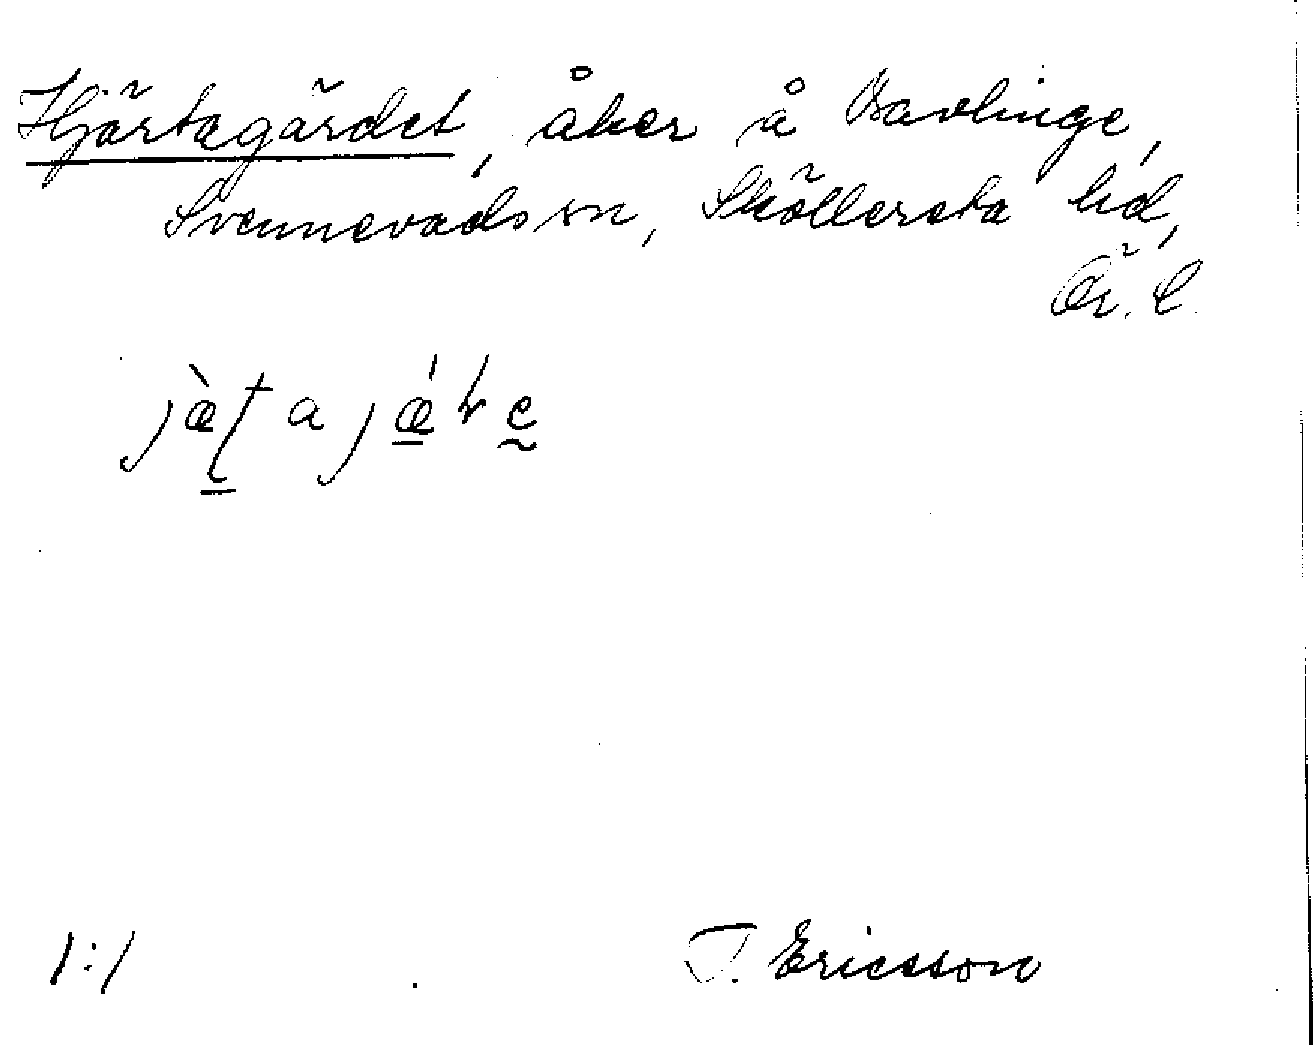 Hjärtagärdet, åker å Bavlinge,
Svennevads sn, Sköllersta hd,
Ör. l.
1:1
T. Ericsson